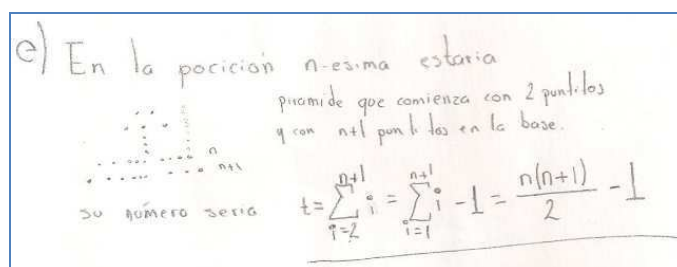 e) En la pocición n-esima estaria
piramide que comienza con 2 puntitos
y con n+1 puntitos en la base.
n
n+1
su número seria t = \sum_{i=2}^{n+1} i = \sum_{i=1}^{n+1} i - 1 = \frac{n(n+1)}{2} - 1